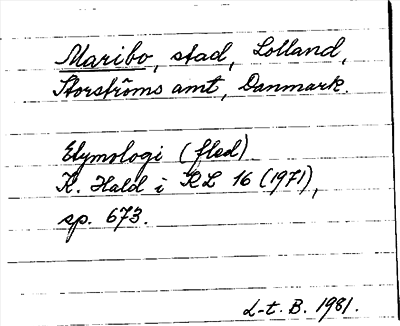 Maribo, stad, Lolland,
Storströms amt, Danmark.
Etymologi (fled)
K. Hald i KL 16 (1971),
sp. 673.
L-t. B. 1981.